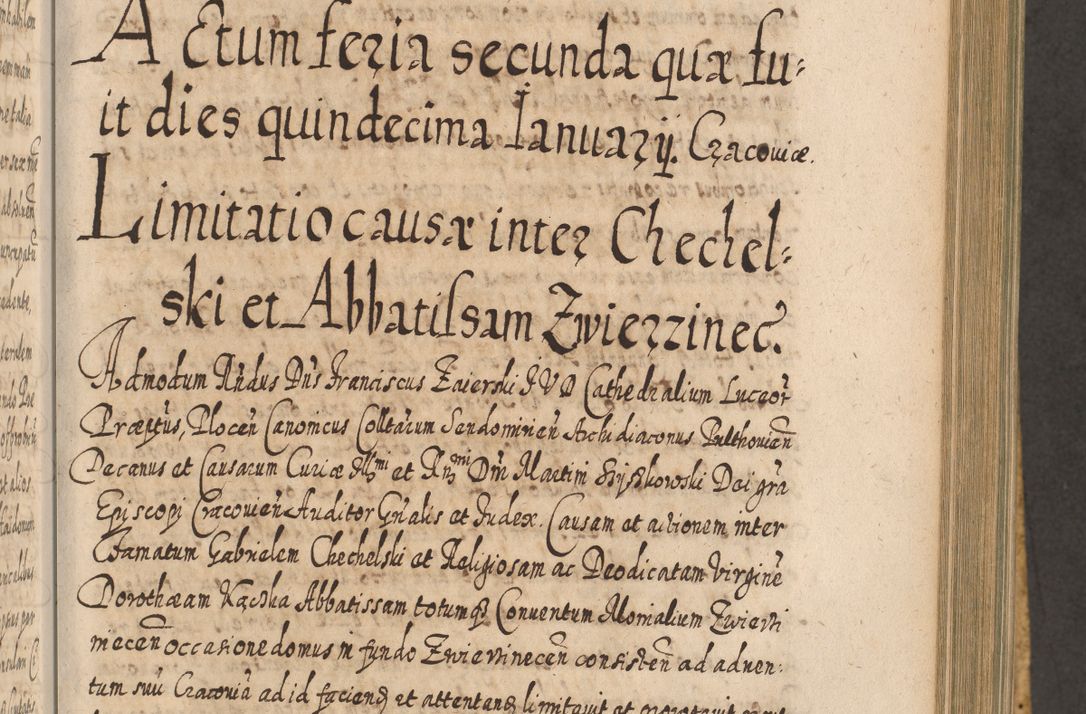 Actum feria secunda quæ fu-
it dies quindecima Ianuarij. Cracoviæ.
Limitatio causæ inter Chechel-
ski et Abbatissam Zwierzinec.
Admodum Rńdus Dńs Franciscus Zaierski I V D Cathedralium Luceor̃
Præptus, Plocen̄ Canonicus Colltarum Sendomirien̄ Archidiaconus Pulthovien̄
Decanus et Causarum Curiæ Illmi et Rndmi Dńi Martini Szyszkowski Dei gr̃a
Episcopi Cracovien̄ Auditor Gńalis et Iudex. Causam et actionem inter
Famatum Gabrielem Chechelski et Religiosam ac Deodicatam Virginē
Dorotheam Kącska Abbatissam totumq Conventum Monialium Zwierzi
niecen̄ occasione domus in fundo Zwierzinecen̄ consisten̄ ad adven-
tum suū Cracoviā ad id faciend et attentand limitavit et prorogavit